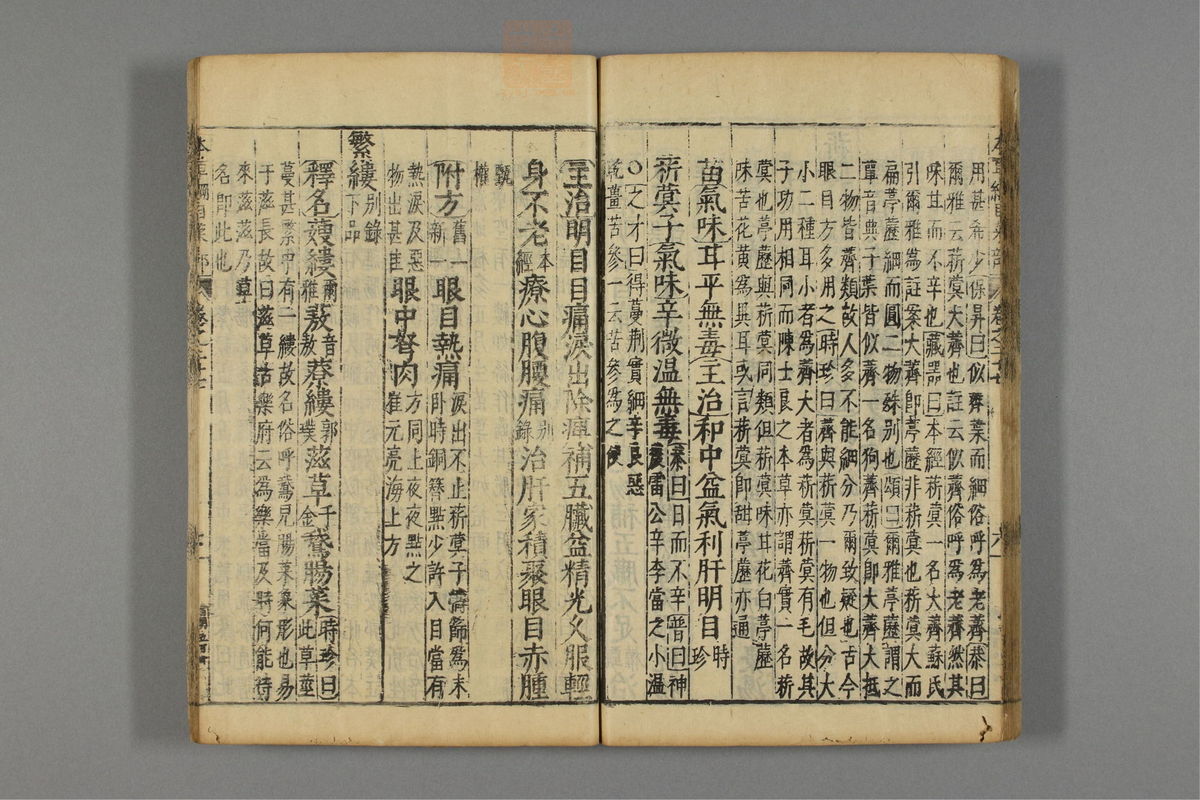 用甚希少保昇曰似薺葉而細俗呼為老薺恭曰
爾雅云菥蓂大薺也註云似薺俗呼為老薺然其
味甘而不辛也藏器曰本經菥蓂一名大薺蘇氏
引爾雅為註案大薺即葶藶非菥蓂也菥蓂大而
扁葶藶細而圓二物殊別也頌曰爾雅葶藶謂之
蕇音典子葉皆似薺一名狗薺菥蓂即大薺大抵
二物皆薺類故人多不能細分乃爾致疑也古今
眼目方多用之時珍曰薺與菥蓂一物也但分大
小二種耳小者為薺大者為菥蓂菥蓂有毛故其
子功用相同而陳士良之本草亦謂薺實一名菥
蓂也葶藶與菥蓂同類但菥蓂味甘花白葶藶
味苦花黃為異耳或言菥蓂即甜葶藶亦通
苗氣味甘平無毒主治和中益氣利肝明目時珍
菥蓂子氣味辛微温無毒恭曰甘而不辛普曰神農雷公辛李當之小温
○之才曰得蔓荊實細辛良惡乾薑苦參一云苦參為之使
主治明目目痛淚出除痺補五臟益精光久服輕
身不老本經療心腹腰痛別錄治肝家積聚眼目赤腫
甄權
附方舊一新一眼目熱痛淚出不止菥蓂子擣篩為末臥時銅簪點少許入目當有
熱淚及惡物出甚佳眼中弩肉方同上夜夜點之崔元亮海上方
繁縷別錄下品
釋名蘩縷爾雅蔜音敖蔜縷郭璞滋草千金鵝腸菜時珍曰此草莖
蔓甚繁中有一縷故名俗呼鵝兒腸菜象形也易
于滋長故曰滋草古樂府云為樂當及時何能待
來滋滋乃草名即此也